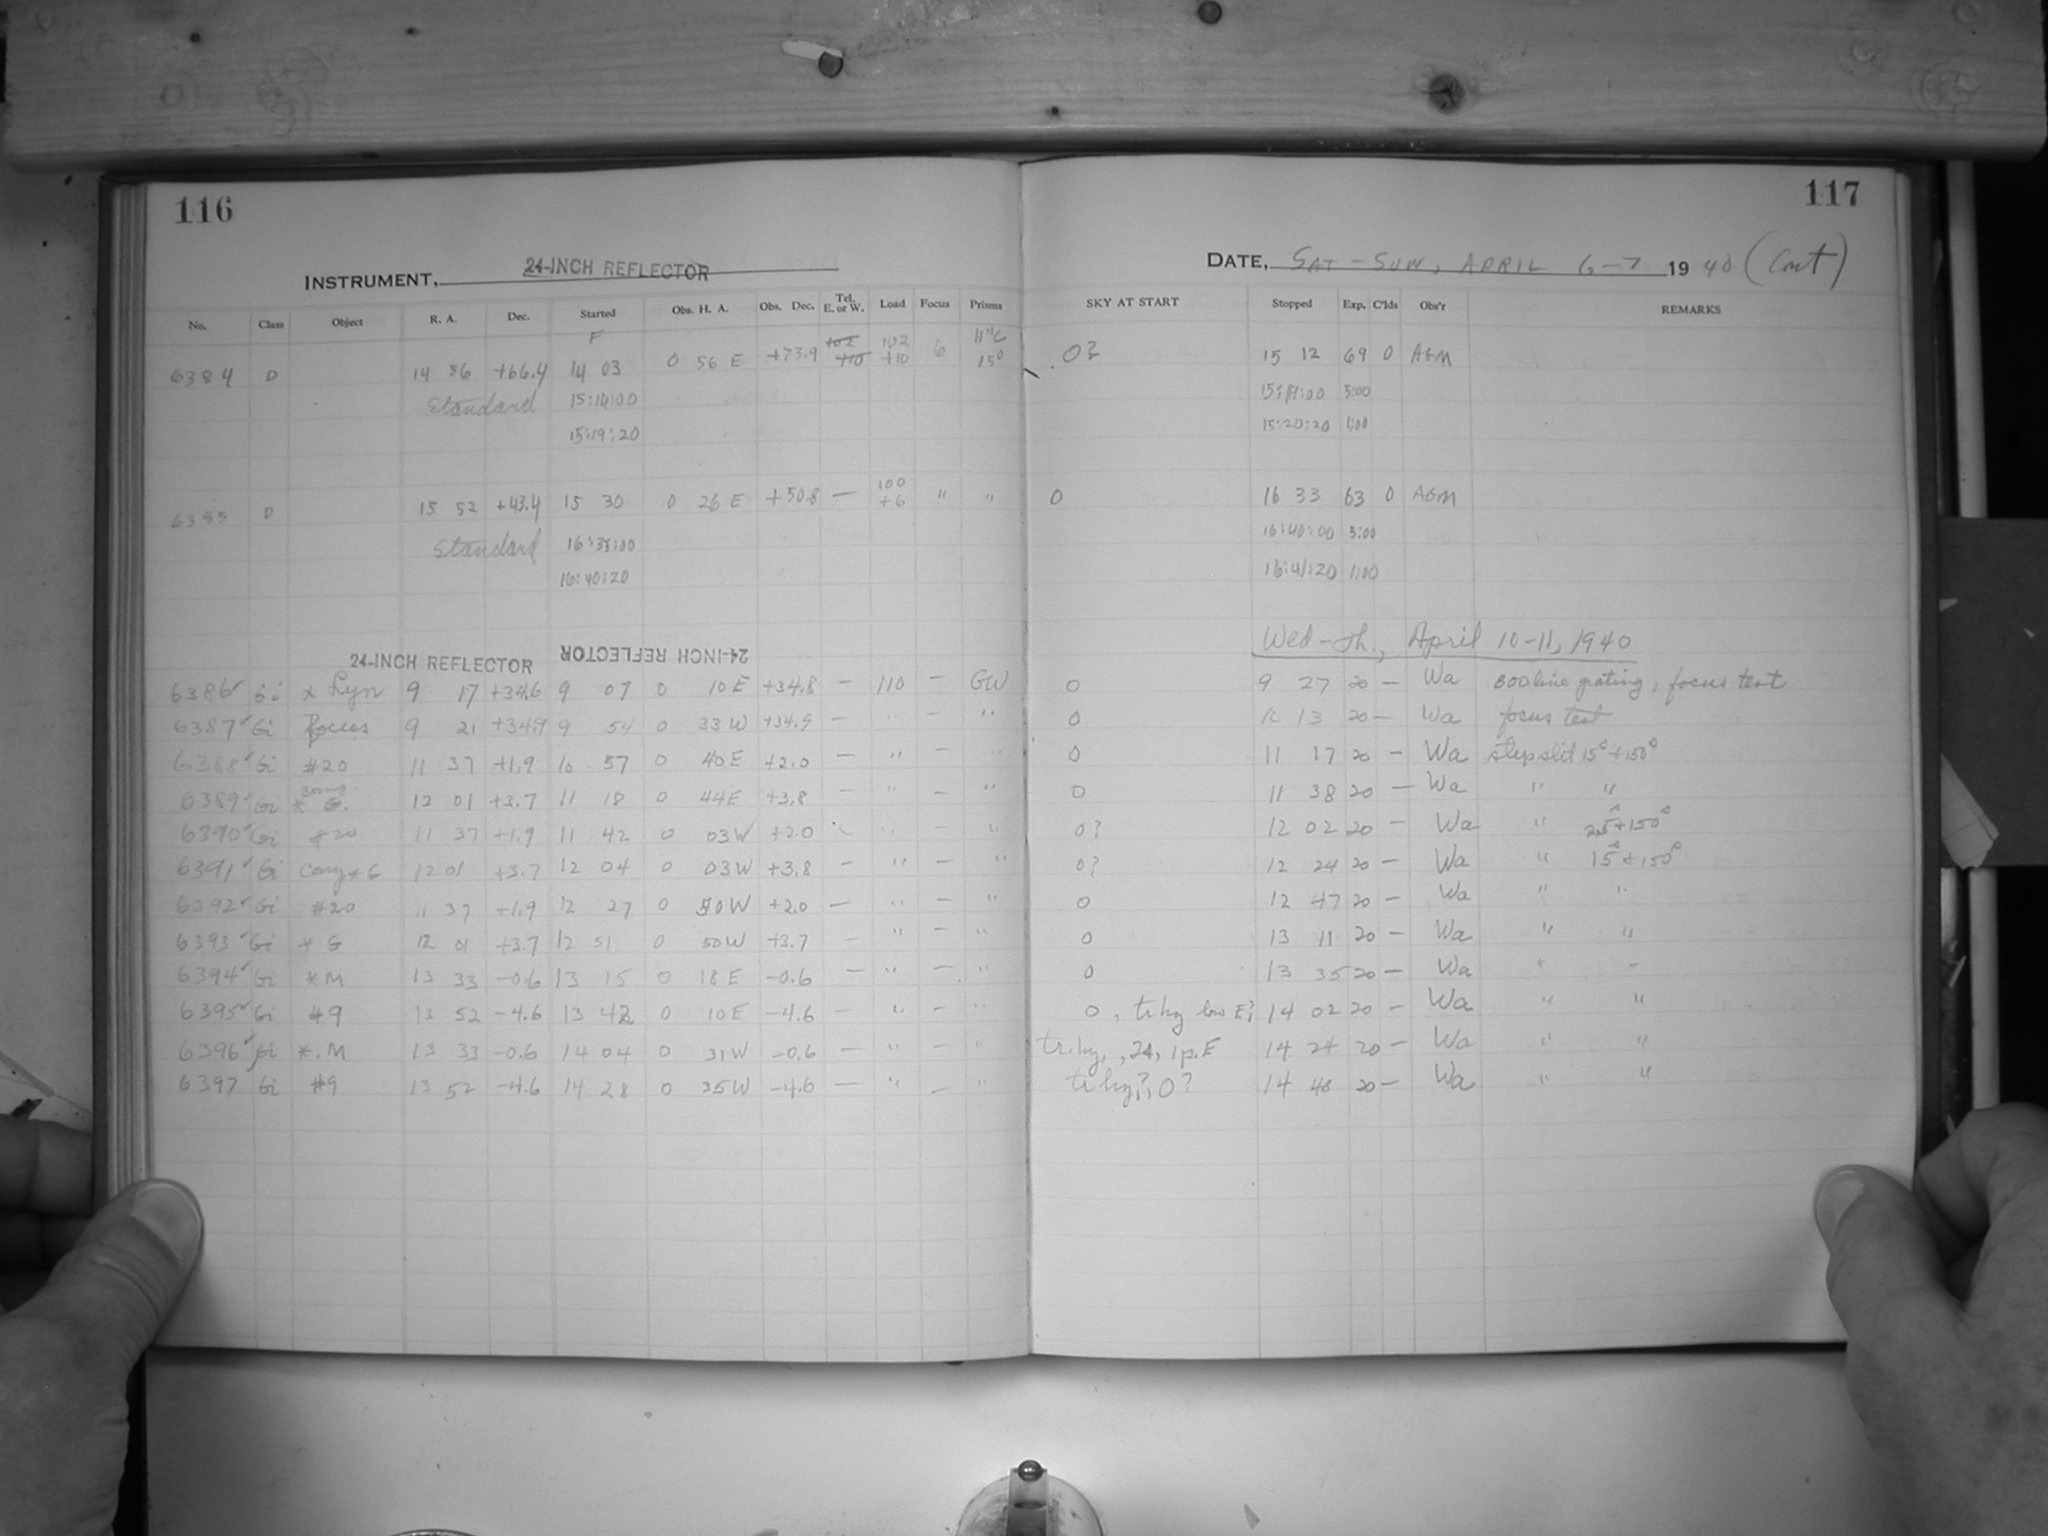 116
117
INSTRUMENT, 24-INCH REFLECTOR
DATE, SAT - SUN, APRIL 6-7 1940 (Cont)
No. Class Object R. A. Dec. Started Obs. H. A. Obs. Dec. Tel. E. or W. Load Focus Prisms SKY AT START Stopped Exp. C'lds Obs'r REMARKS
F
6384 D 14 56 +66.4 14 03 0 56 E +73.9 102 +10 102 +10 6 11"C 15° 0? 15 12 69 0 AGM
Standard 15:14:00 15:19:00 5:00
15:19:20 15:20:20 1:00
6385 D 15 52 +43.4 15 30 0 26 E +50.8 — 100 +6 " " 0 16 33 63 0 AGM
Standard 16:35:00 16:40:00 5:00
16:40:20 16:41:20 1:00
24-INCH REFLECTOR 24-INCH REFLECTOR Wed-Th., April 10-11, 1940
6386 Gi * Lyn 9 17 +34.6 9 07 0 10 E +34.8 — 110 — GW 0 9 27 20 — Wa 300 line grating, focus test
6387 Gi Focus 9 21 +34.9 9 54 0 33 W +34.9 — " — " 0 10 13 20 — Wa focus test
6388 Gi #20 11 37 +1.9 10 57 0 40 E +2.0 — " — " 0 11 17 20 — Wa step slit 15° + 150°
6389 Gi comp * G. 12 01 +3.7 11 18 0 44 E +3.8 — " — " 0 11 38 20 — Wa " "
6390 Gi #20 11 37 +1.9 11 42 0 03 W +2.0 — " — " 0? 12 02 20 — Wa " 25 + 150°
6391 Gi Comp * G 12 01 +3.7 12 04 0 03 W +3.8 — " — " 0? 12 24 20 — Wa " 15 + 150°
6392 Gi #20 11 37 +1.9 12 27 0 50 W +2.0 — " — " 0 12 47 20 — Wa " "
6393 Gi * G 12 01 +3.7 12 51 0 50 W +3.7 — " — " 0 13 11 20 — Wa " "
6394 Gi * M 13 33 -0.6 13 15 0 18 E -0.6 — " — " 0 13 35 20 — Wa " "
6395 Gi #9 13 52 -4.6 13 42 0 10 E -4.6 — " — " 0, tr. hy low E? 14 02 20 — Wa " "
6396 Gi *. M 13 33 -0.6 14 04 0 31 W -0.6 — " — " tr. hy, , 1 p. E 14 24 20 — Wa " "
6397 Gi #9 13 52 -4.6 14 28 0 35 W -4.6 — " — " tr hy?, 0? 14 48 20 — Wa " "